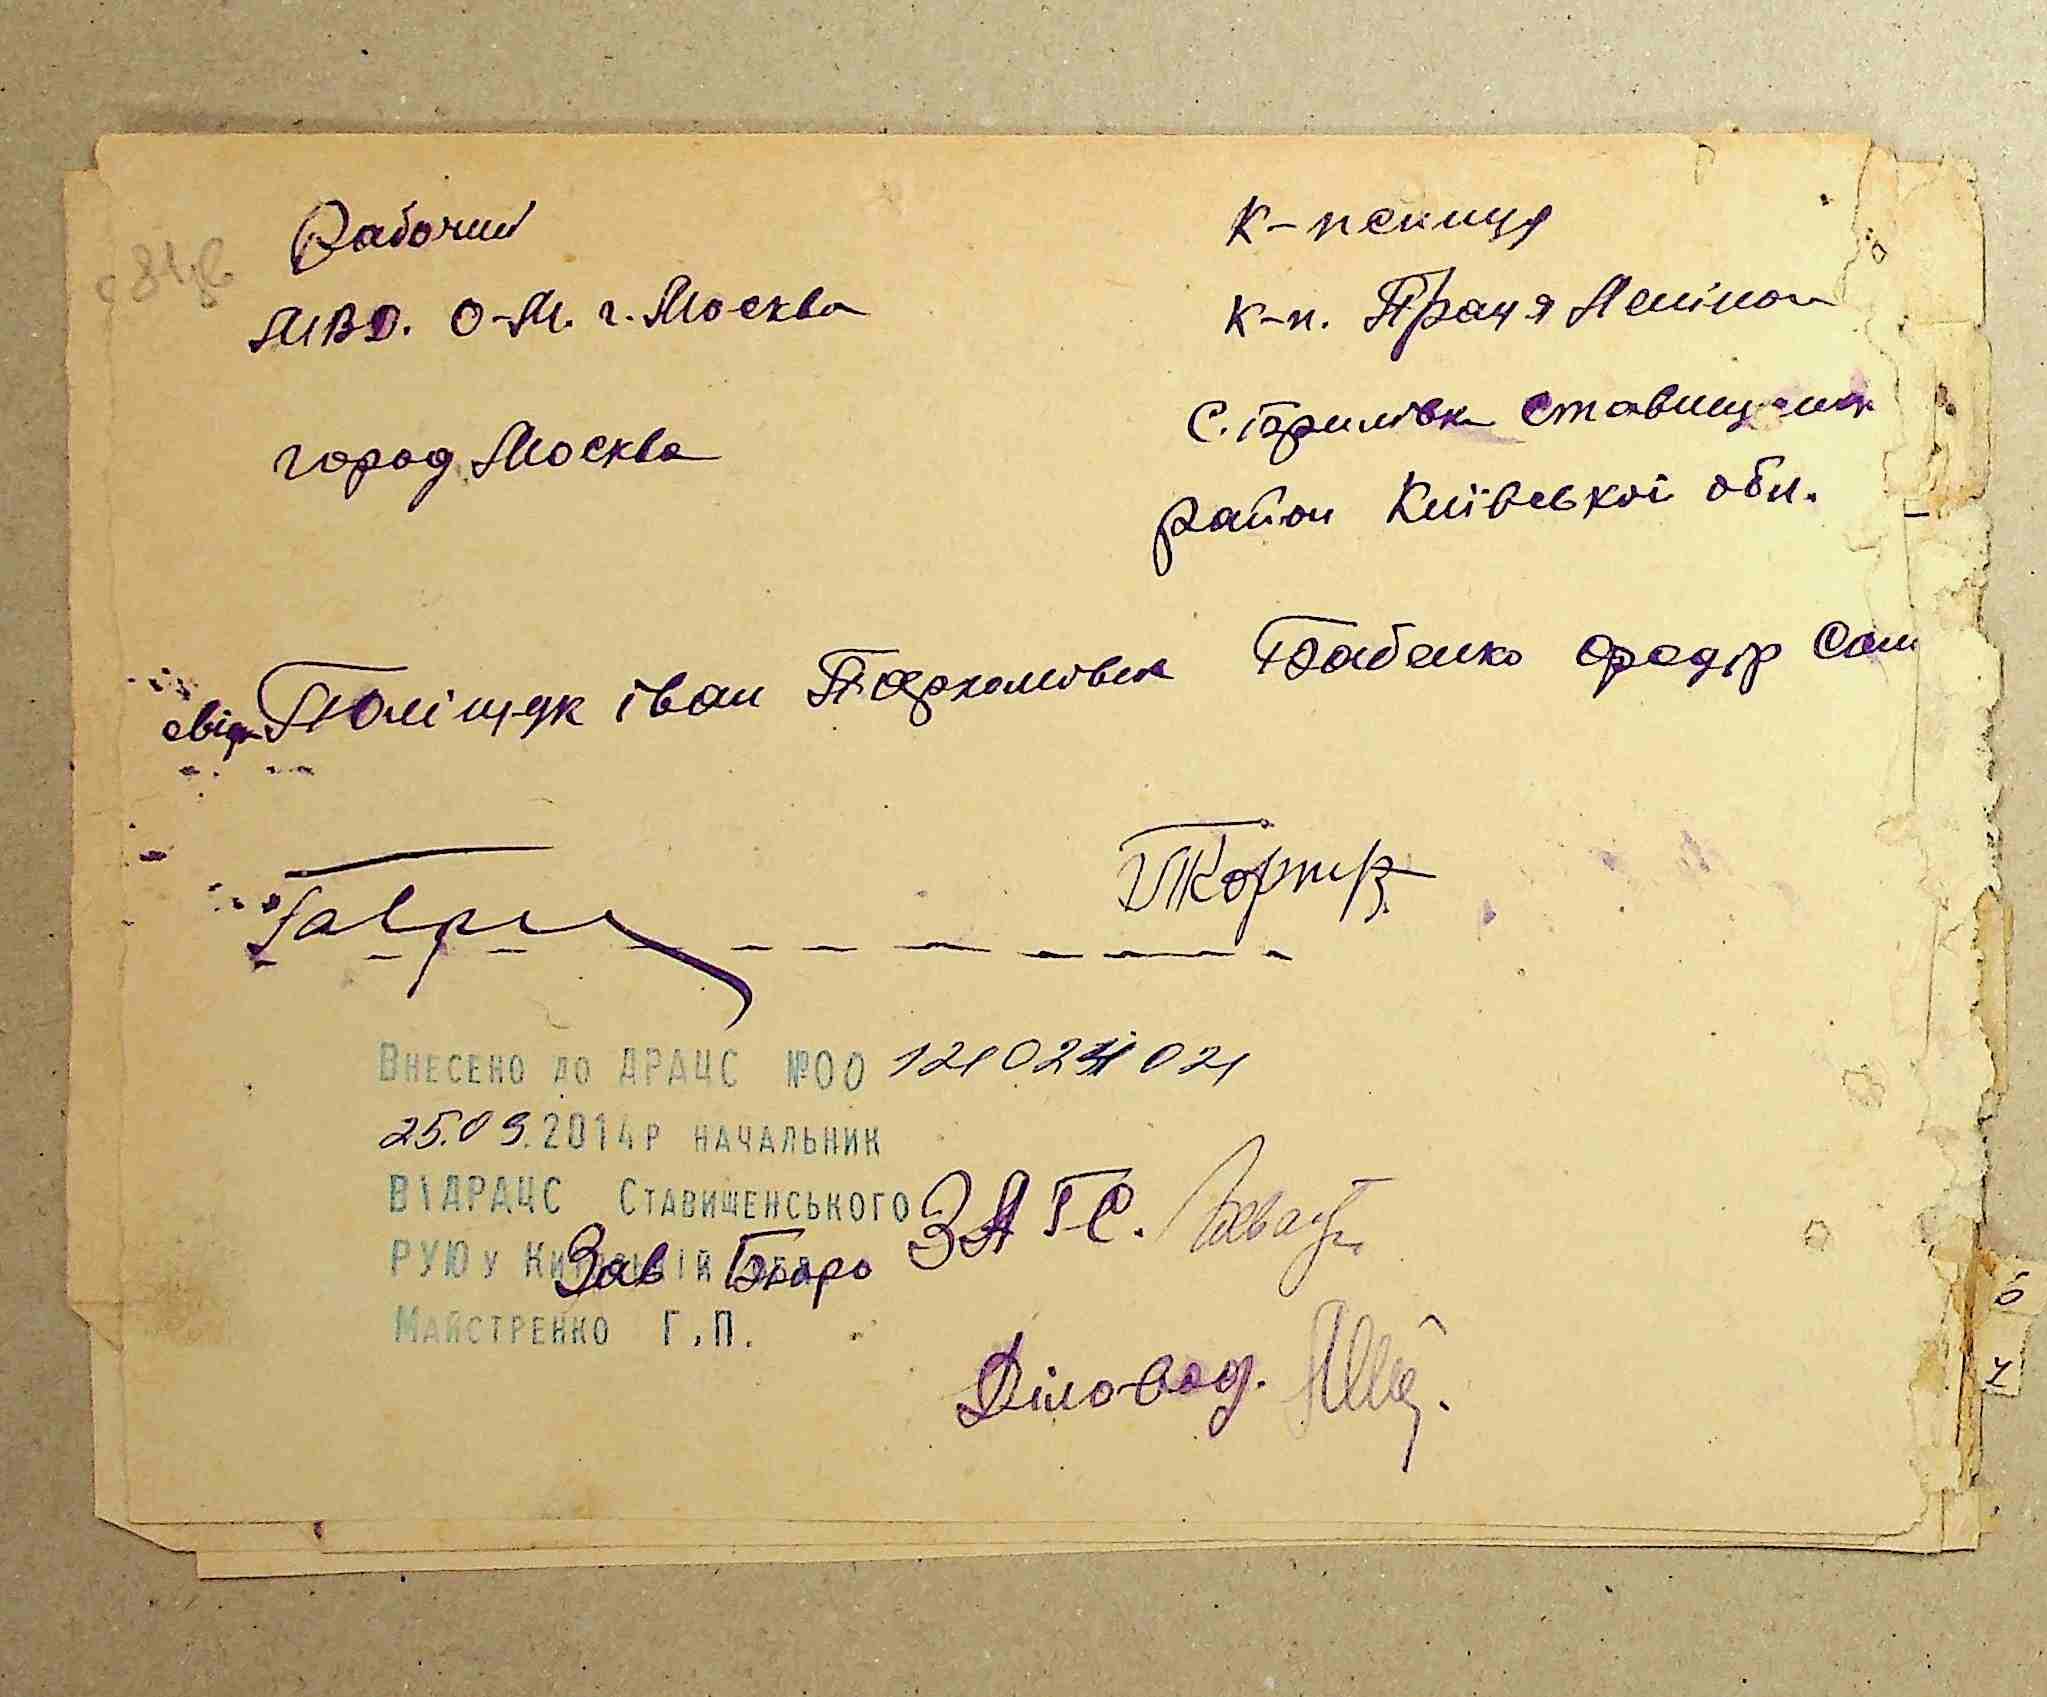 Рабочий
МВД. О-М. г. Москва
город Москва
К-пєниця
К-п. Праця Леніна
С. Брилівка Ставищанськ
район Київської обл.
свідк. Поліщук Іван Пархомович Бабенко Федір Сам
Внесено до ДРАЦС №00 121023021
25.09.2014р начальник
ВІДРАЦС Ставищенського
РУЮ у Київській обл.
Майстренко Г.П.
Зав Бюро ЗАГС.
Діловод.